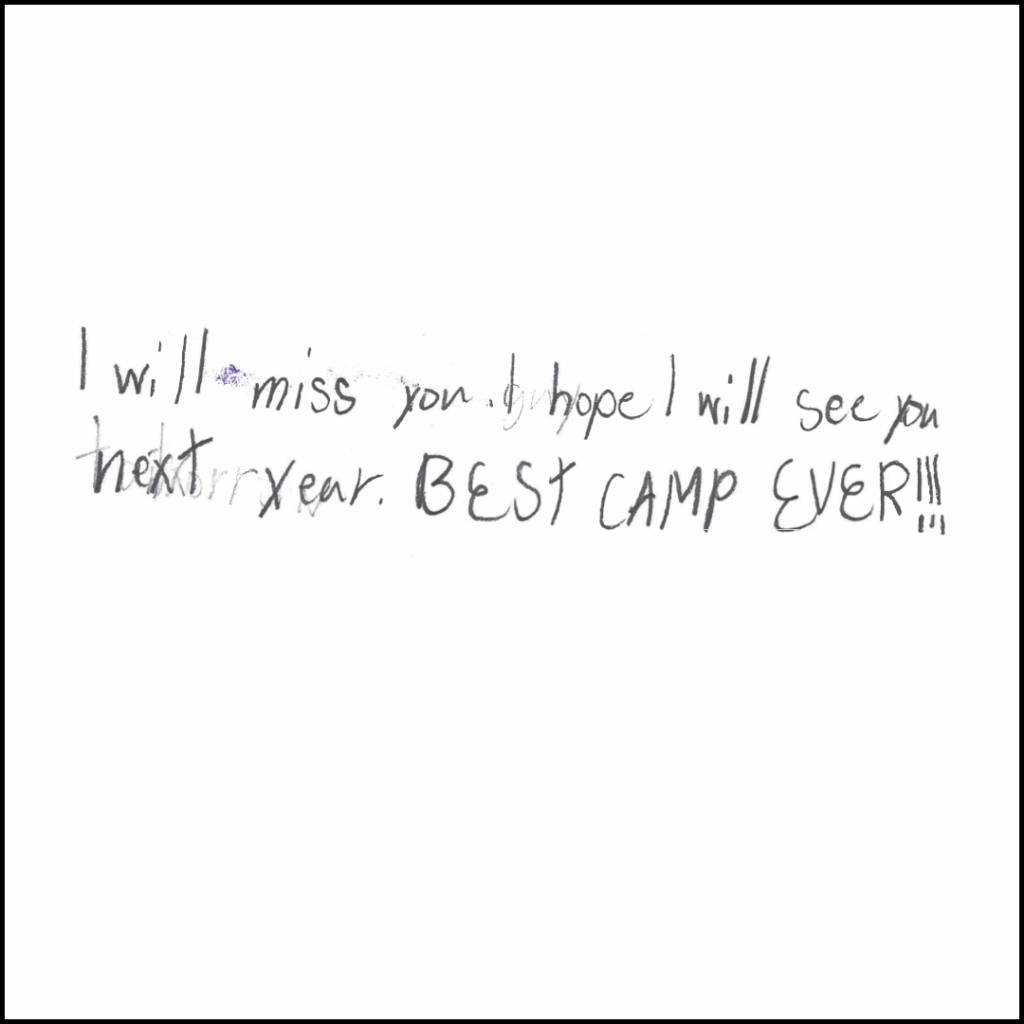 I will miss you. I hope I will see you
next year. BEST CAMP EVER!!!